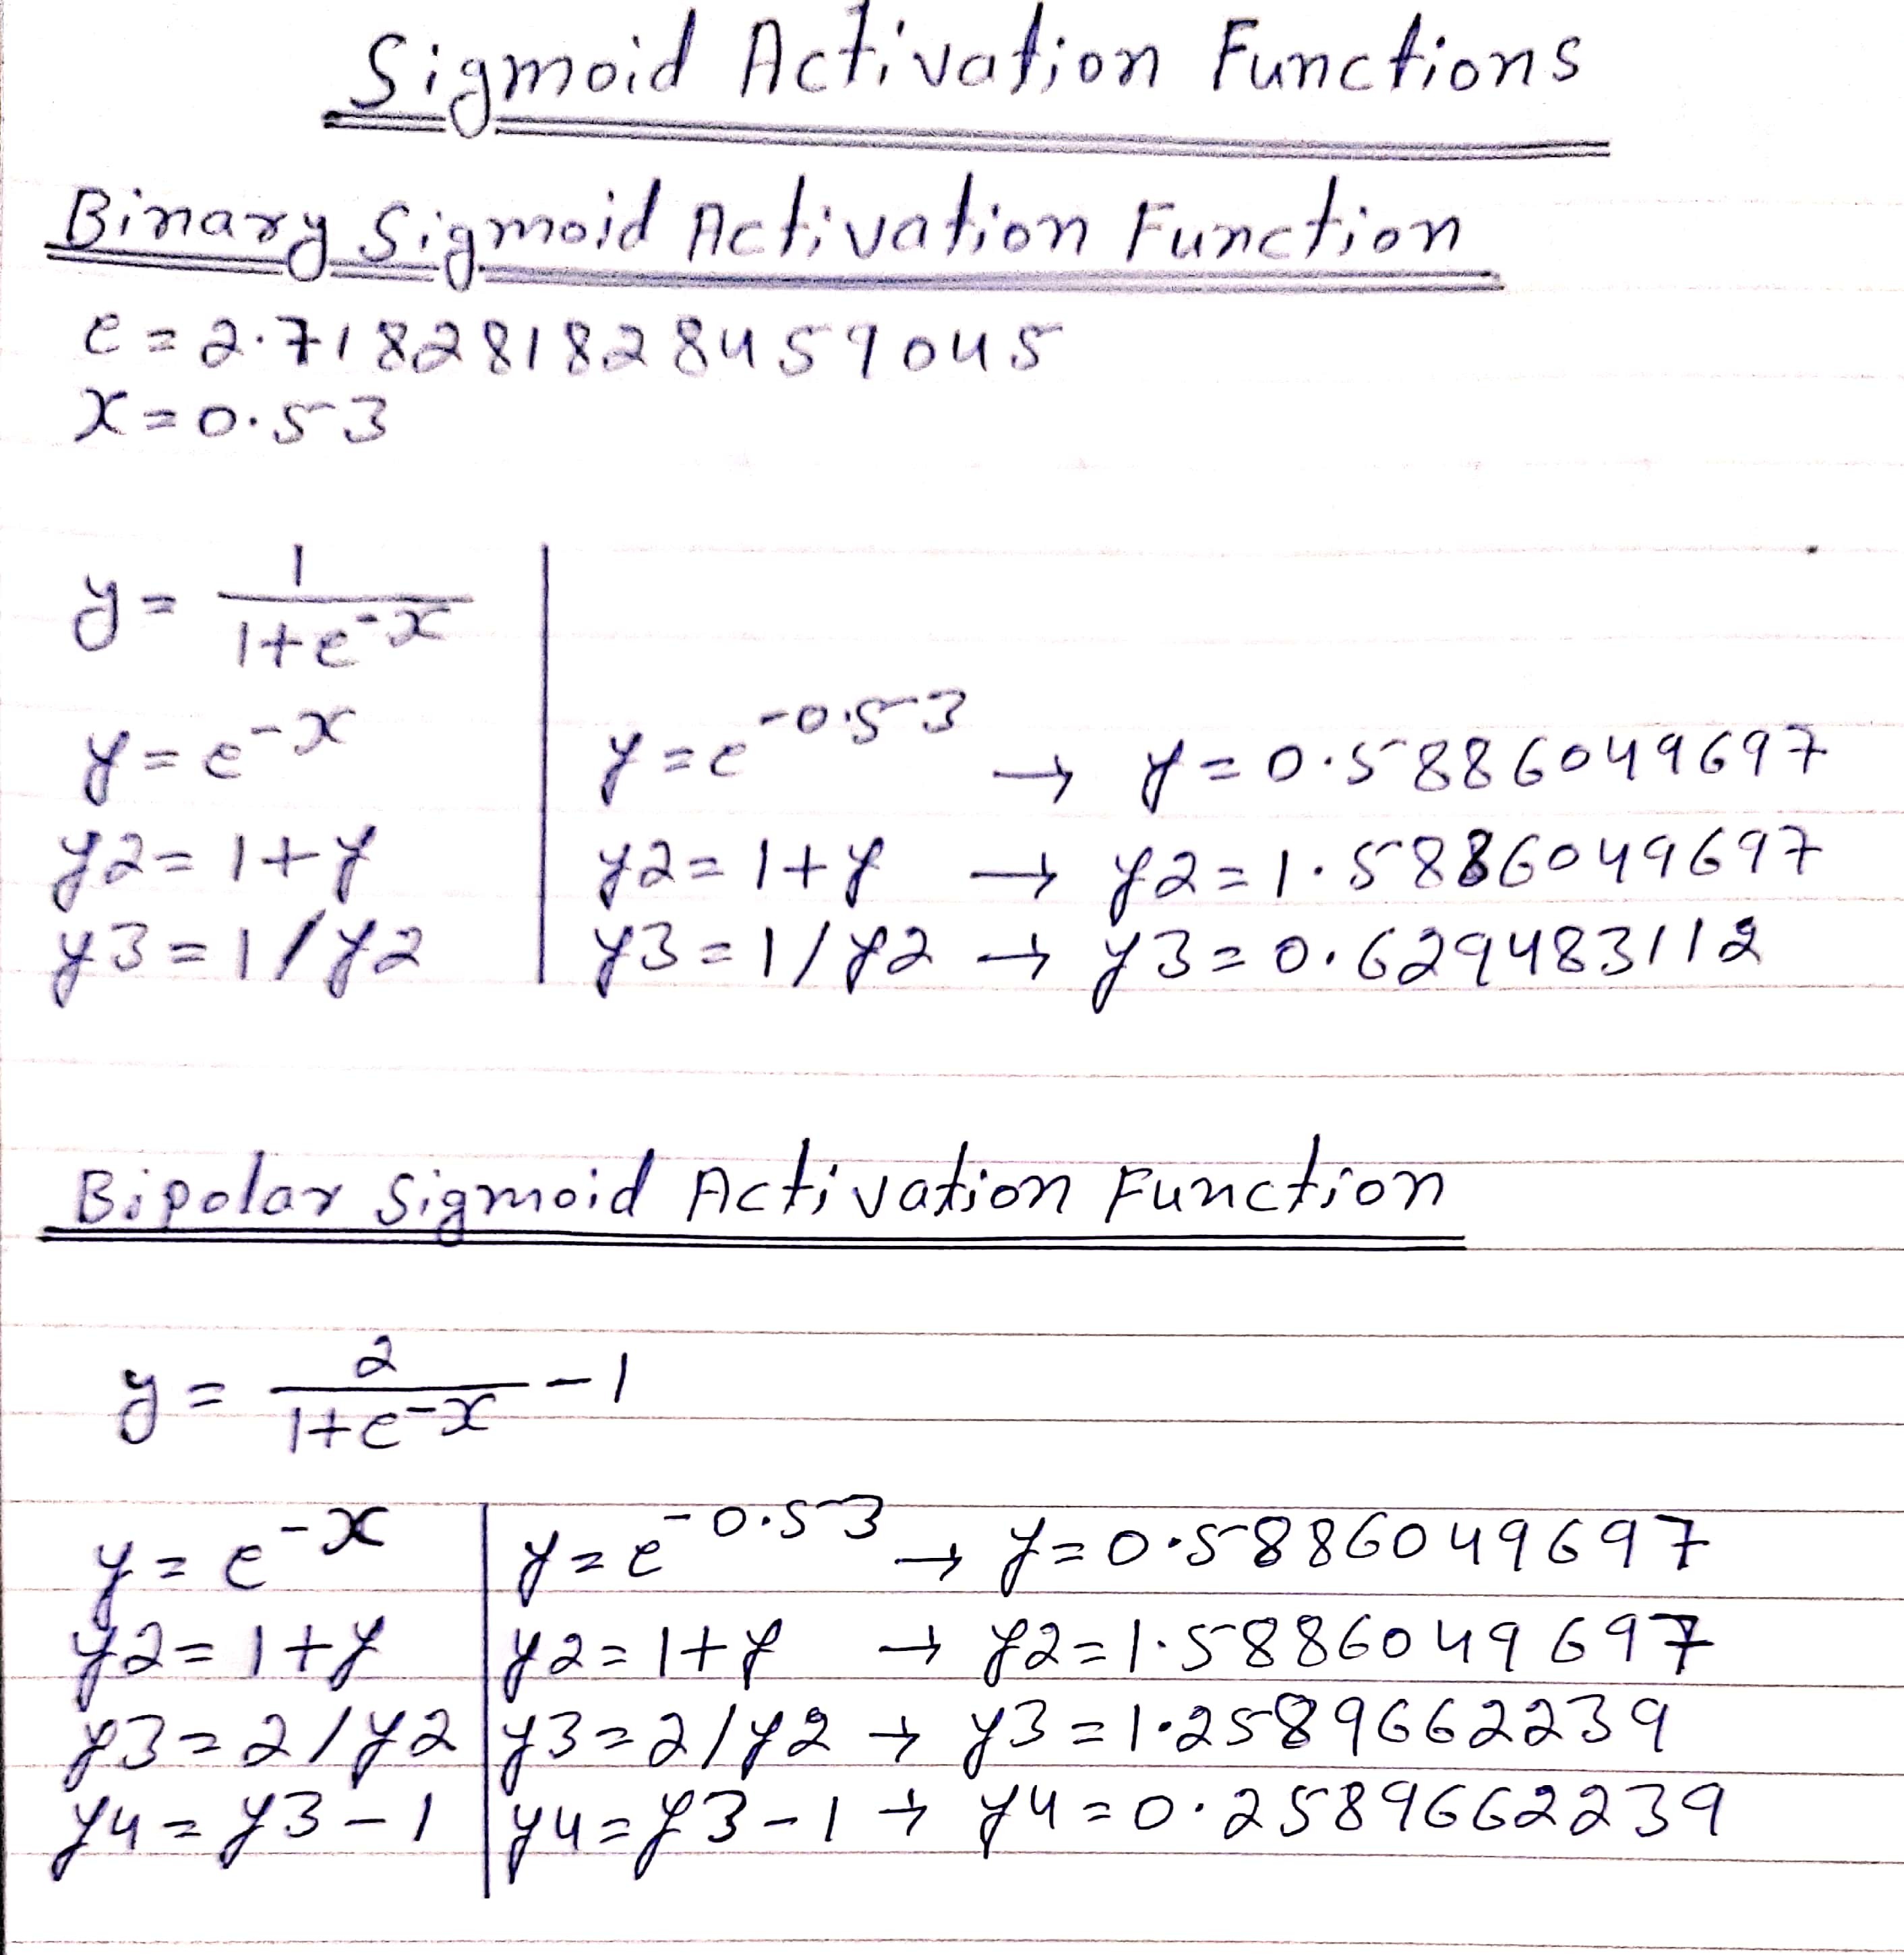 Sigmoid Activation Functions
Binary Sigmoid Activation Function
e = 2.718281828459045
x = 0.53
y = 1/(1+e^-x)
y = e^-x | y = e^-0.53 → y = 0.5886049697
y2 = 1+y | y2 = 1+y → y2 = 1.5886049697
y3 = 1/y2 | y3 = 1/y2 → y3 = 0.6294483112
Bipolar Sigmoid Activation Function
y = 2/(1+e^-x) - 1
y = e^-x | y = e^-0.53 → y = 0.5886049697
y2 = 1+y | y2 = 1+y → y2 = 1.5886049697
y3 = 2/y2 | y3 = 2/y2 → y3 = 1.2589662239
y4 = y3-1 | y4 = y3-1 → y4 = 0.2589662239